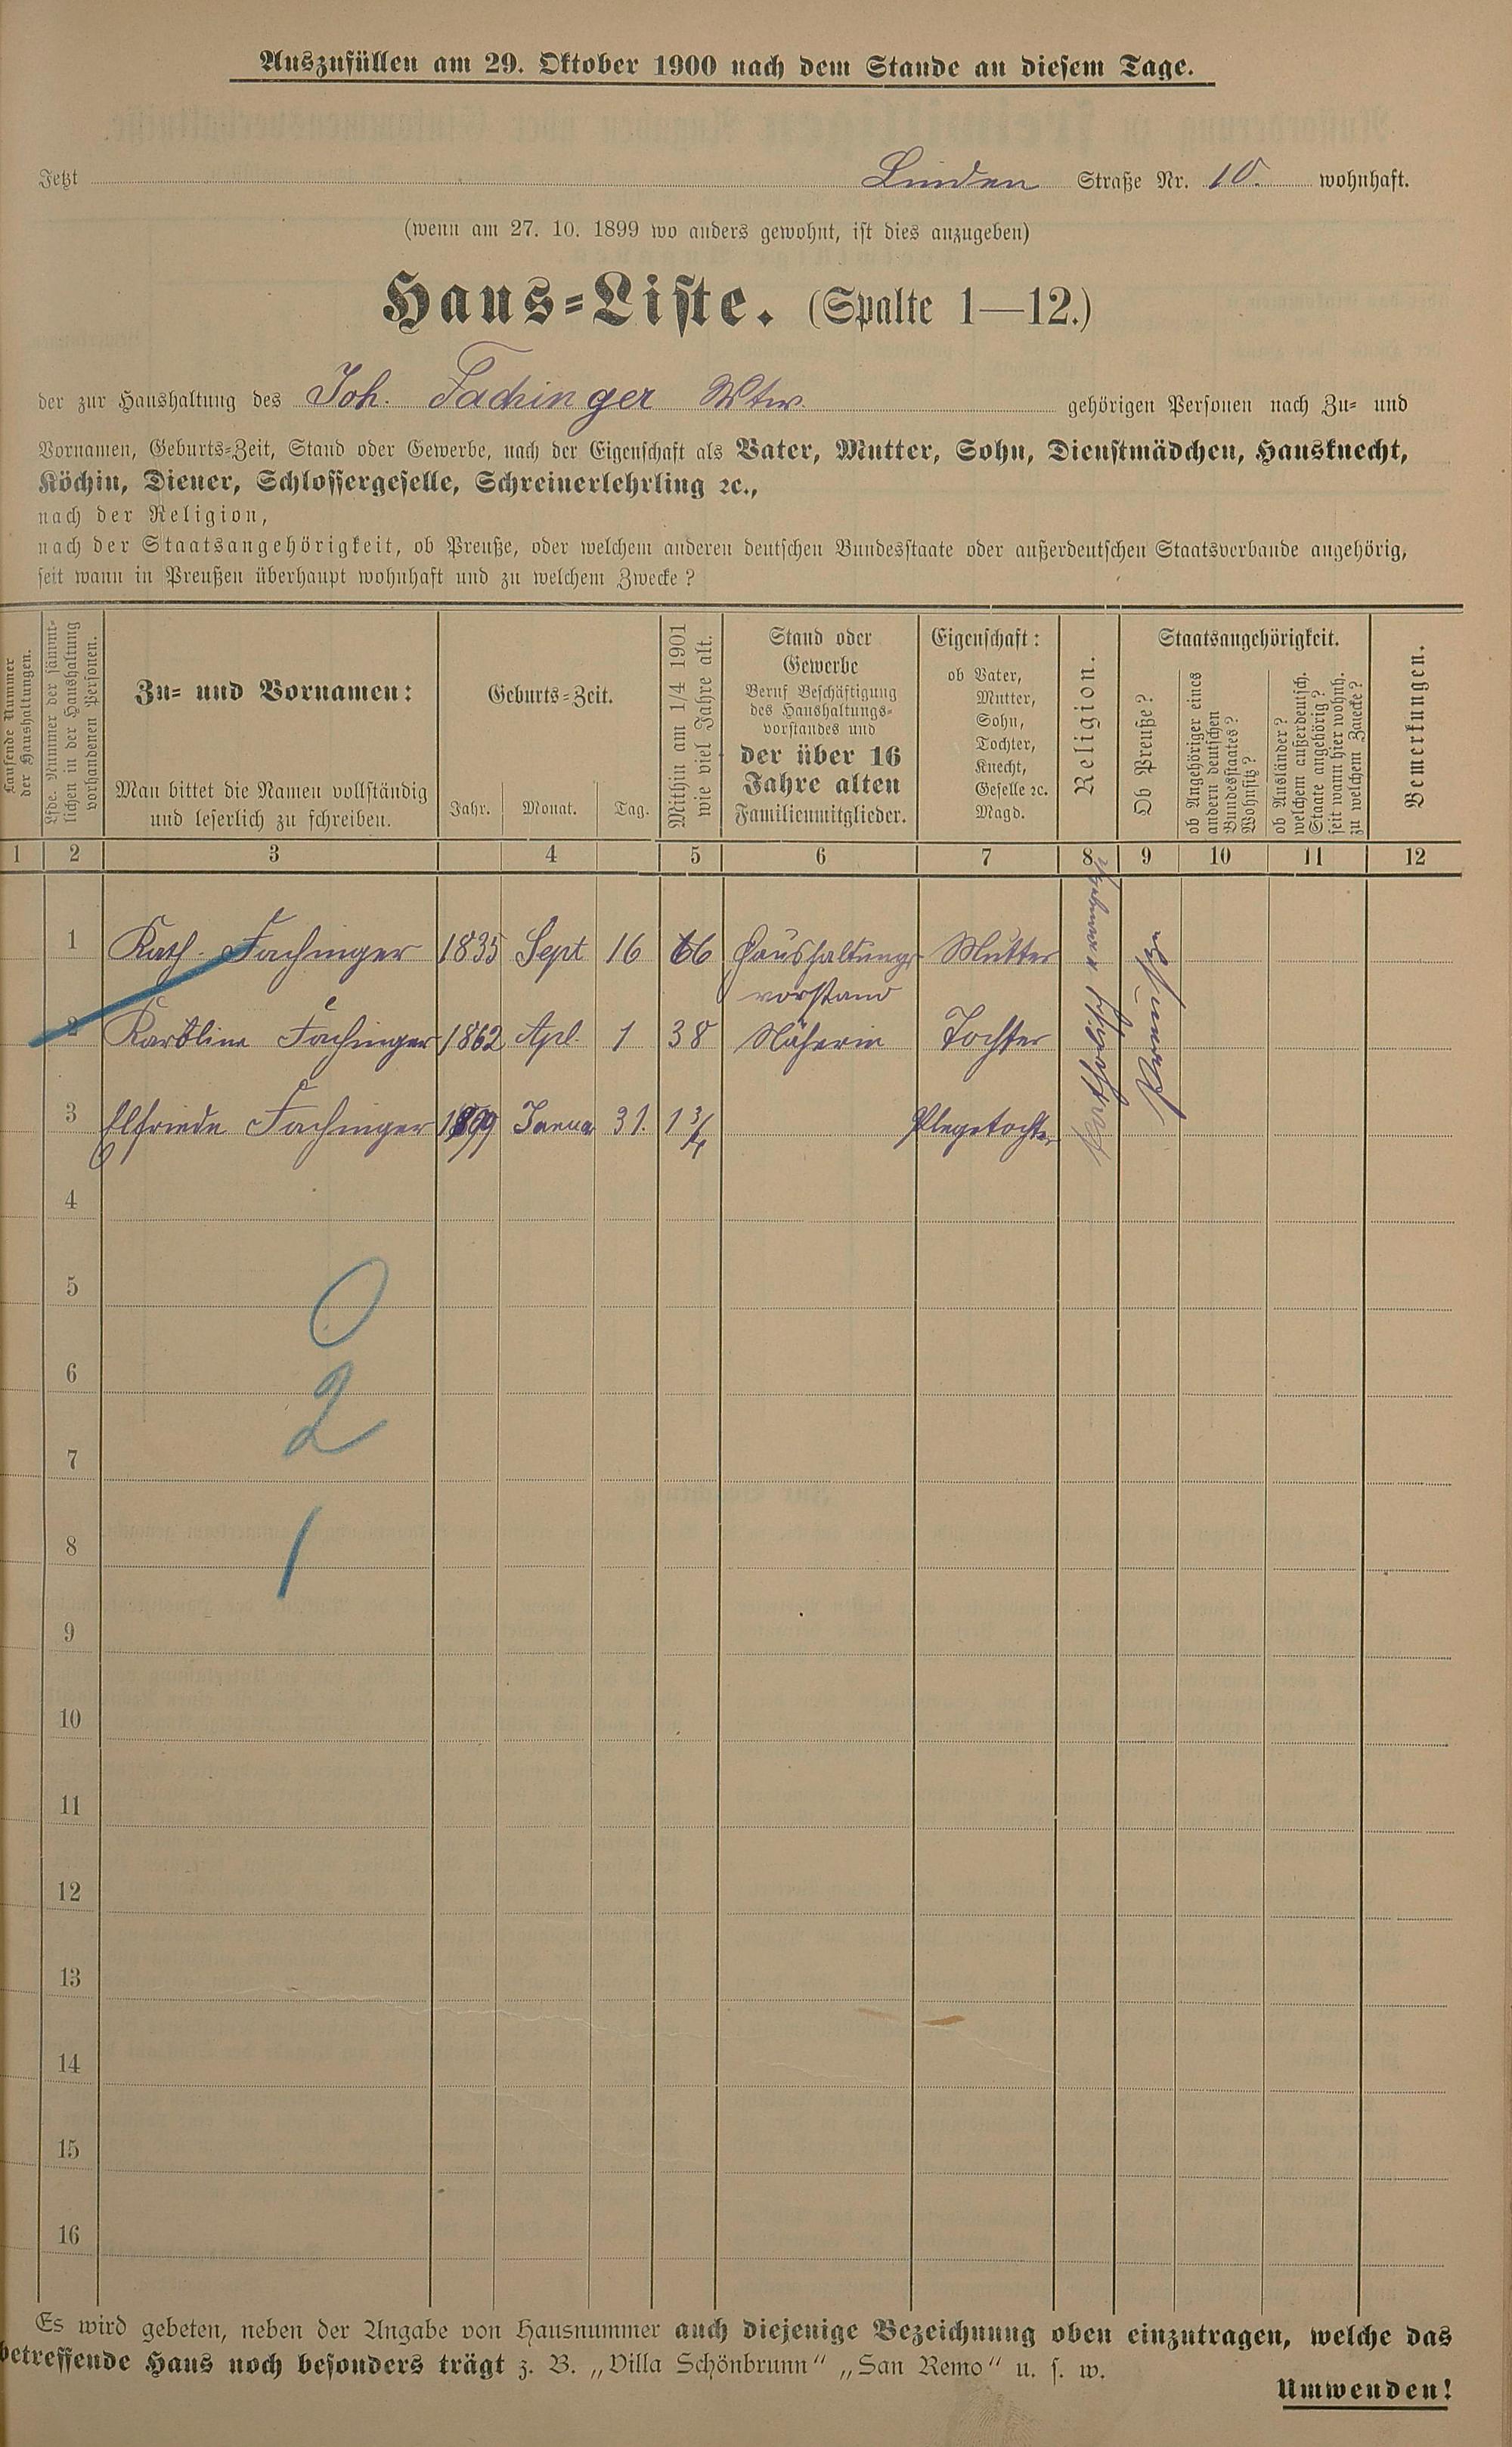 Auszufüllen am 29. Oktober 1900 nach dem Stande an diesem Tage.
Jetzt Linden Straße Nr. 10. wohnhaft.
(wenn am 27. 10. 1899 wo anders gewohnt, ist dies anzugeben)
Haus=Liste. (Spalte 1—12.)
der zur Haushaltung des Joh. Fachinger Wtw. gehörigen Personen nach Zu= und
Vornamen, Geburts=Zeit, Stand oder Gewerbe, nach der Eigenschaft als Vater, Mutter, Sohn, Dienstmädchen, Hausknecht,
Köchin, Diener, Schlossergeselle, Schreinerlehrling ꝛc.,
nach der Religion,
nach der Staatsangehörigkeit, ob Preuße, oder welchem anderen deutschen Bundesstaate oder außerdeutschen Staatsverbande angehörig,
seit wann in Preußen überhaupt wohnhaft und zu welchem Zwecke?
Laufende Nummer
der Haushaltungen.
Lfde. Nummer der sämmt=
lichen in der Haushaltung
vorhandenen Personen.
Zu= und Vornamen:
Man bittet die Namen vollständig
und leserlich zu schreiben.
Geburts=Zeit.
Jahr. Monat. Tag.
Mithin am 1/4 1901
wie viel Jahre alt.
Stand oder
Gewerbe
Beruf Beschäftigung
des Haushaltungs=
vorstandes und
der über 16
Jahre alten
Familienmitglieder.
Eigenschaft:
ob Vater,
Mutter,
Sohn,
Tochter,
Knecht,
Geselle ꝛc.
Magd.
Religion.
Staatsangehörigkeit.
Ob Preuße?
ob Angehöriger eines
andern deutschen
Bundesstaates?
Wohnsitz?
ob Ausländer?
welchem außerdeutsch.
Staate angehörig?
seit wann hier wohnh.
zu welchem Zwecke?
Bemerkungen.
1 2 3 4 5 6 7 8 9 10 11 12
1 Kath. Fachinger 1835 Sept 16 66 Haushaltungs Mutter
vorstand
2 Karoline Fachinger 1862 Apl. 1 38 Näherin Tochter
3 Elfriede Fachinger 1899 Januar 31. 1 3/4 Plegetochter
Preuße
4
5
0
6
2
7
8
1
9
10
11
12
13
14
15
16
Es wird gebeten, neben der Angabe von Hausnummer auch diejenige Bezeichnung oben einzutragen, welche das
betreffende Haus noch besonders trägt z. B. „Villa Schönbrunn“ „San Remo“ u. s. w.
Umwenden!